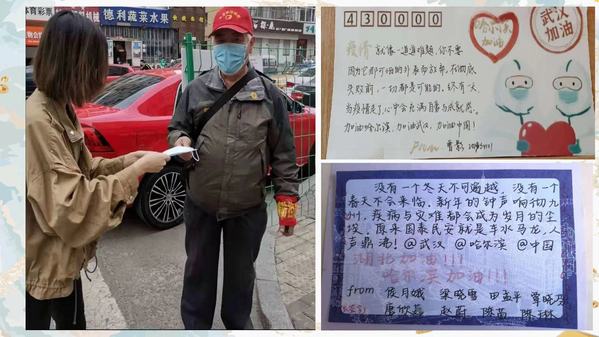 体育彩票
德利蔬菜水果
430000
哈尔滨
加油
武汉
加油
疫情就像一道道难题,你不要
因为它那可怕的外表而放弃,在彻底
失败前,一切都是可能的,终有一天,
当疫情走了,心中会充满
加油哈尔滨,加油武汉,加油中国!
From
没有一个冬天不可逾越,没有一个
春天不会来临.新年的钟声响彻九
州,疫病与灾难都会成为岁月的尘
埃,原来国泰民安就是车水马龙,人
声鼎沸!@武汉 @哈尔滨 @中国
湖北加油!!!
哈尔滨加油!!!
from 侯月娥 梁晓雪 田孟平 覃晓丹
唐欣嘉 赵蔚 陈苗 陈琳